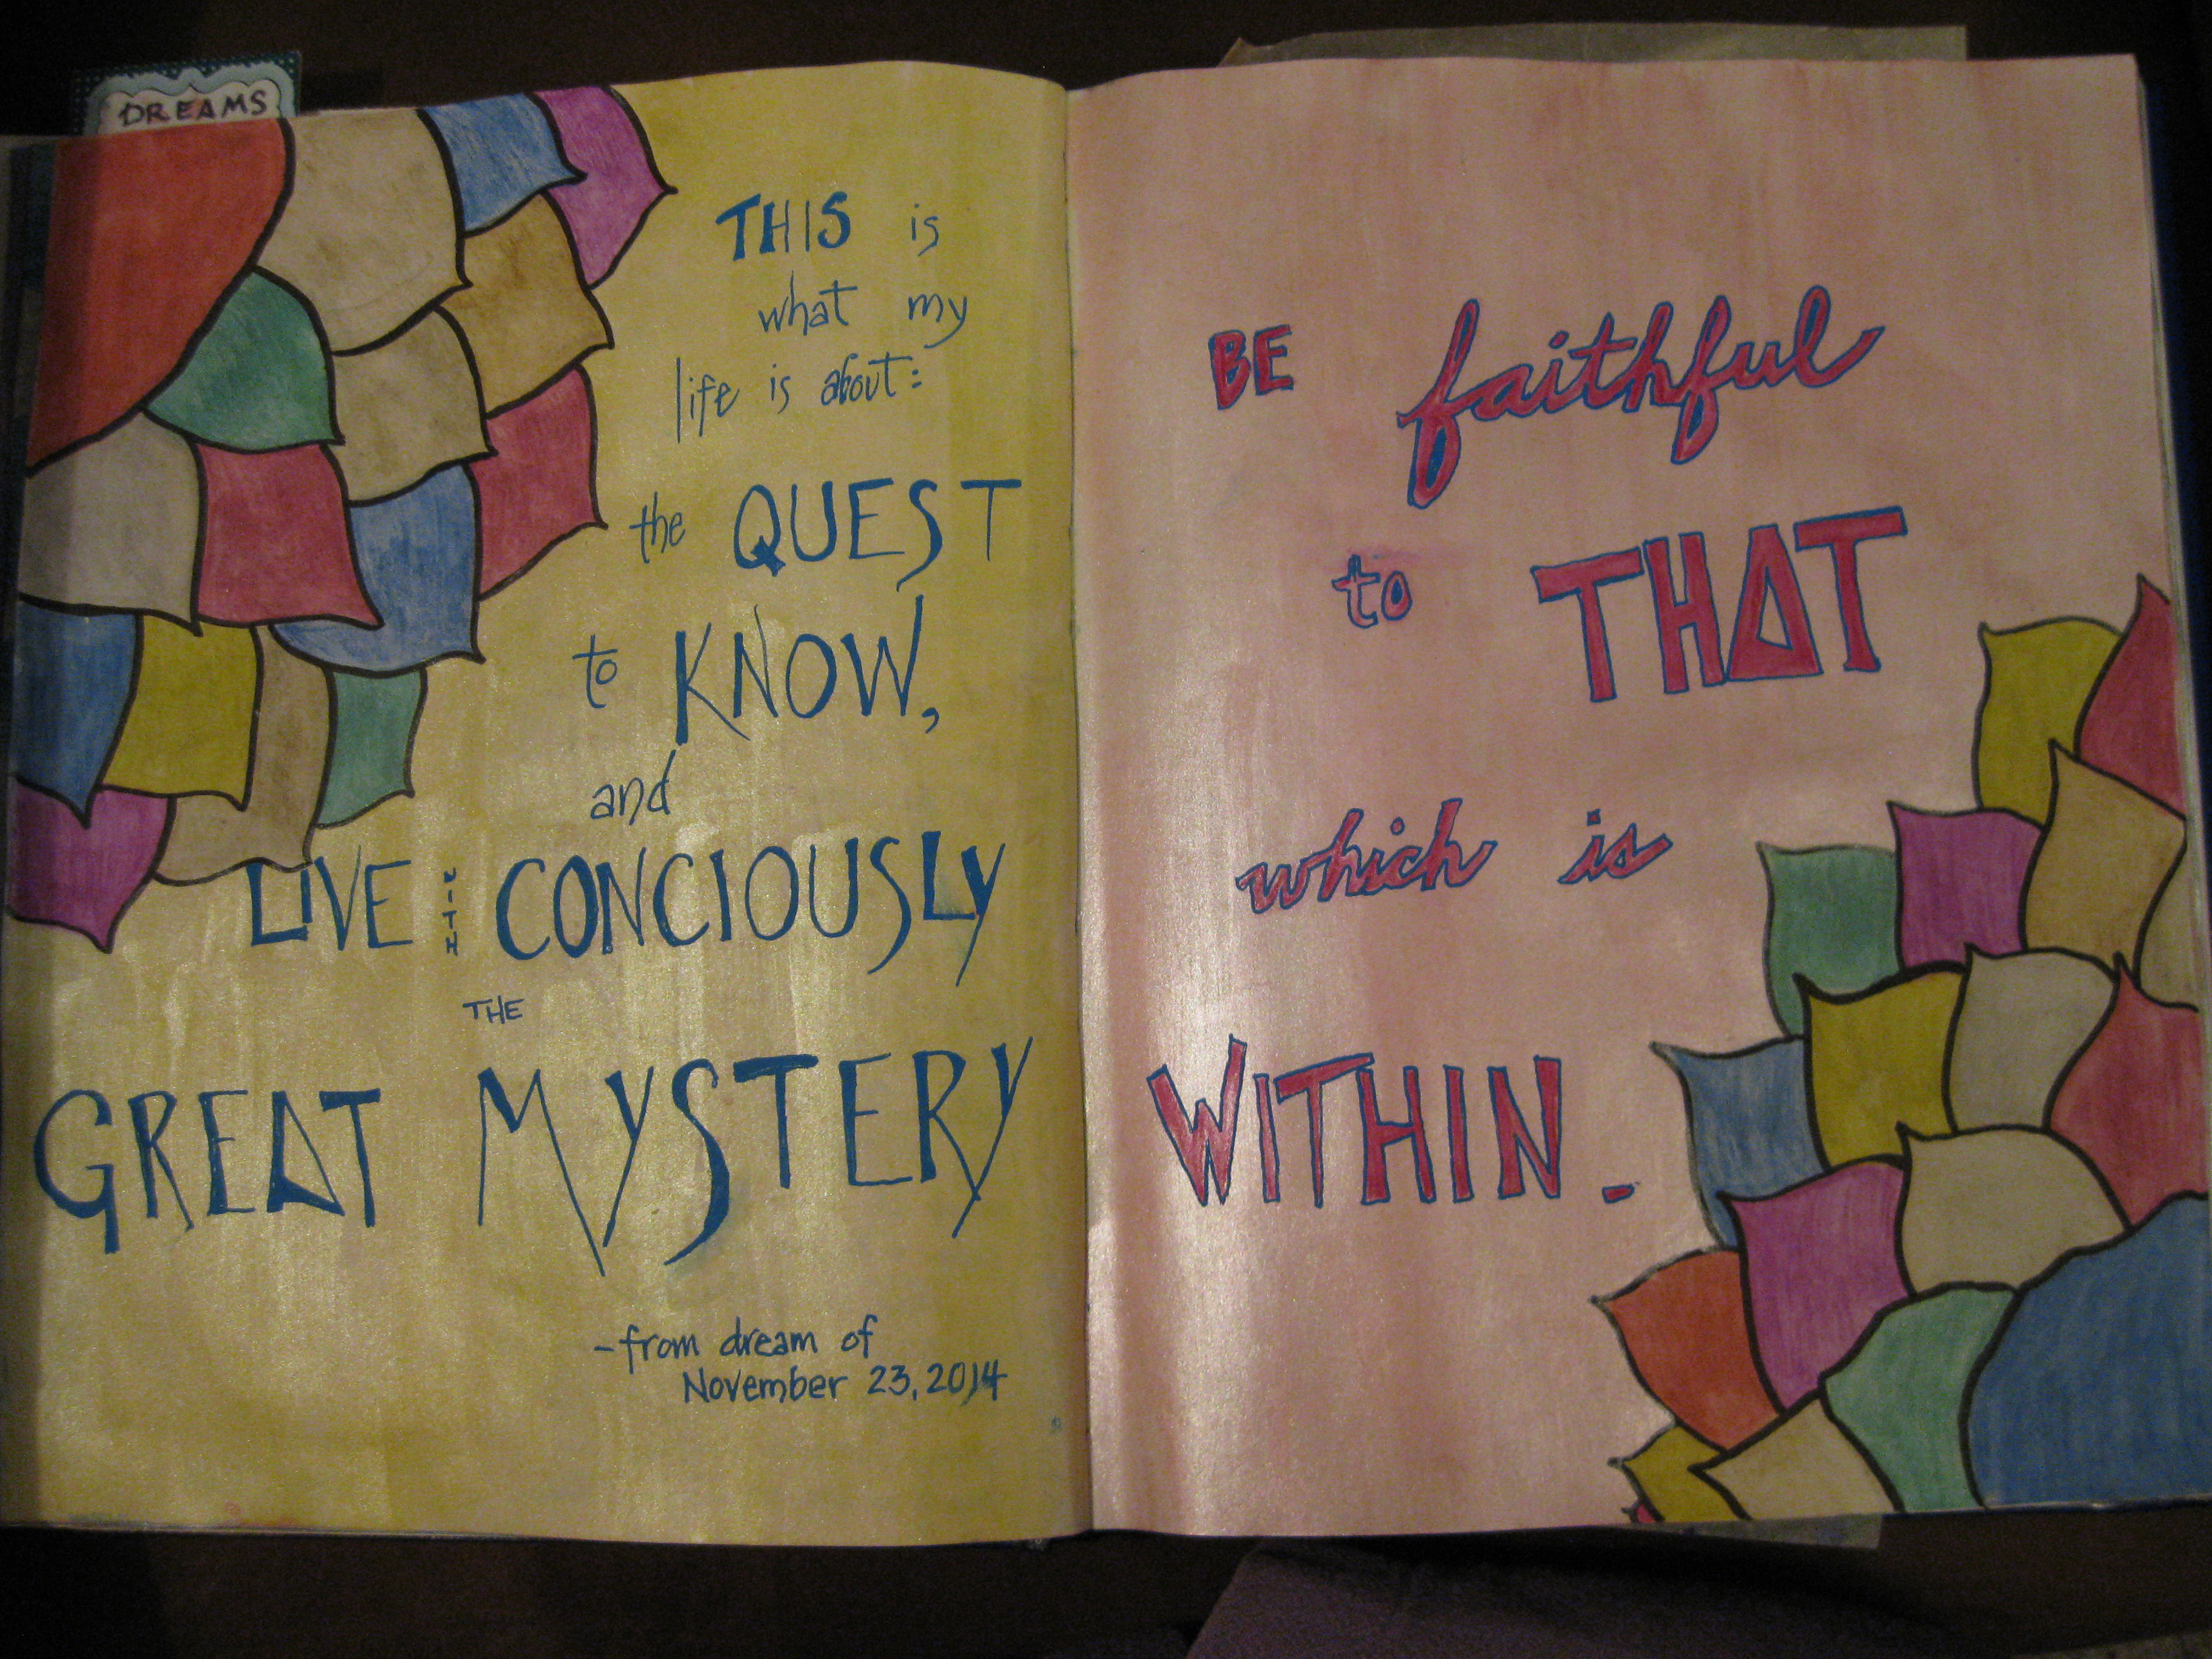 DREAMS
THIS is
what my
life is about:
the QUEST
to KNOW,
and
LIVE WITH CONCIOUSLY
THE
GREAT MYSTERY
-from dream of
November 23, 2014
BE faithful
to THAT
which is
WITHIN.